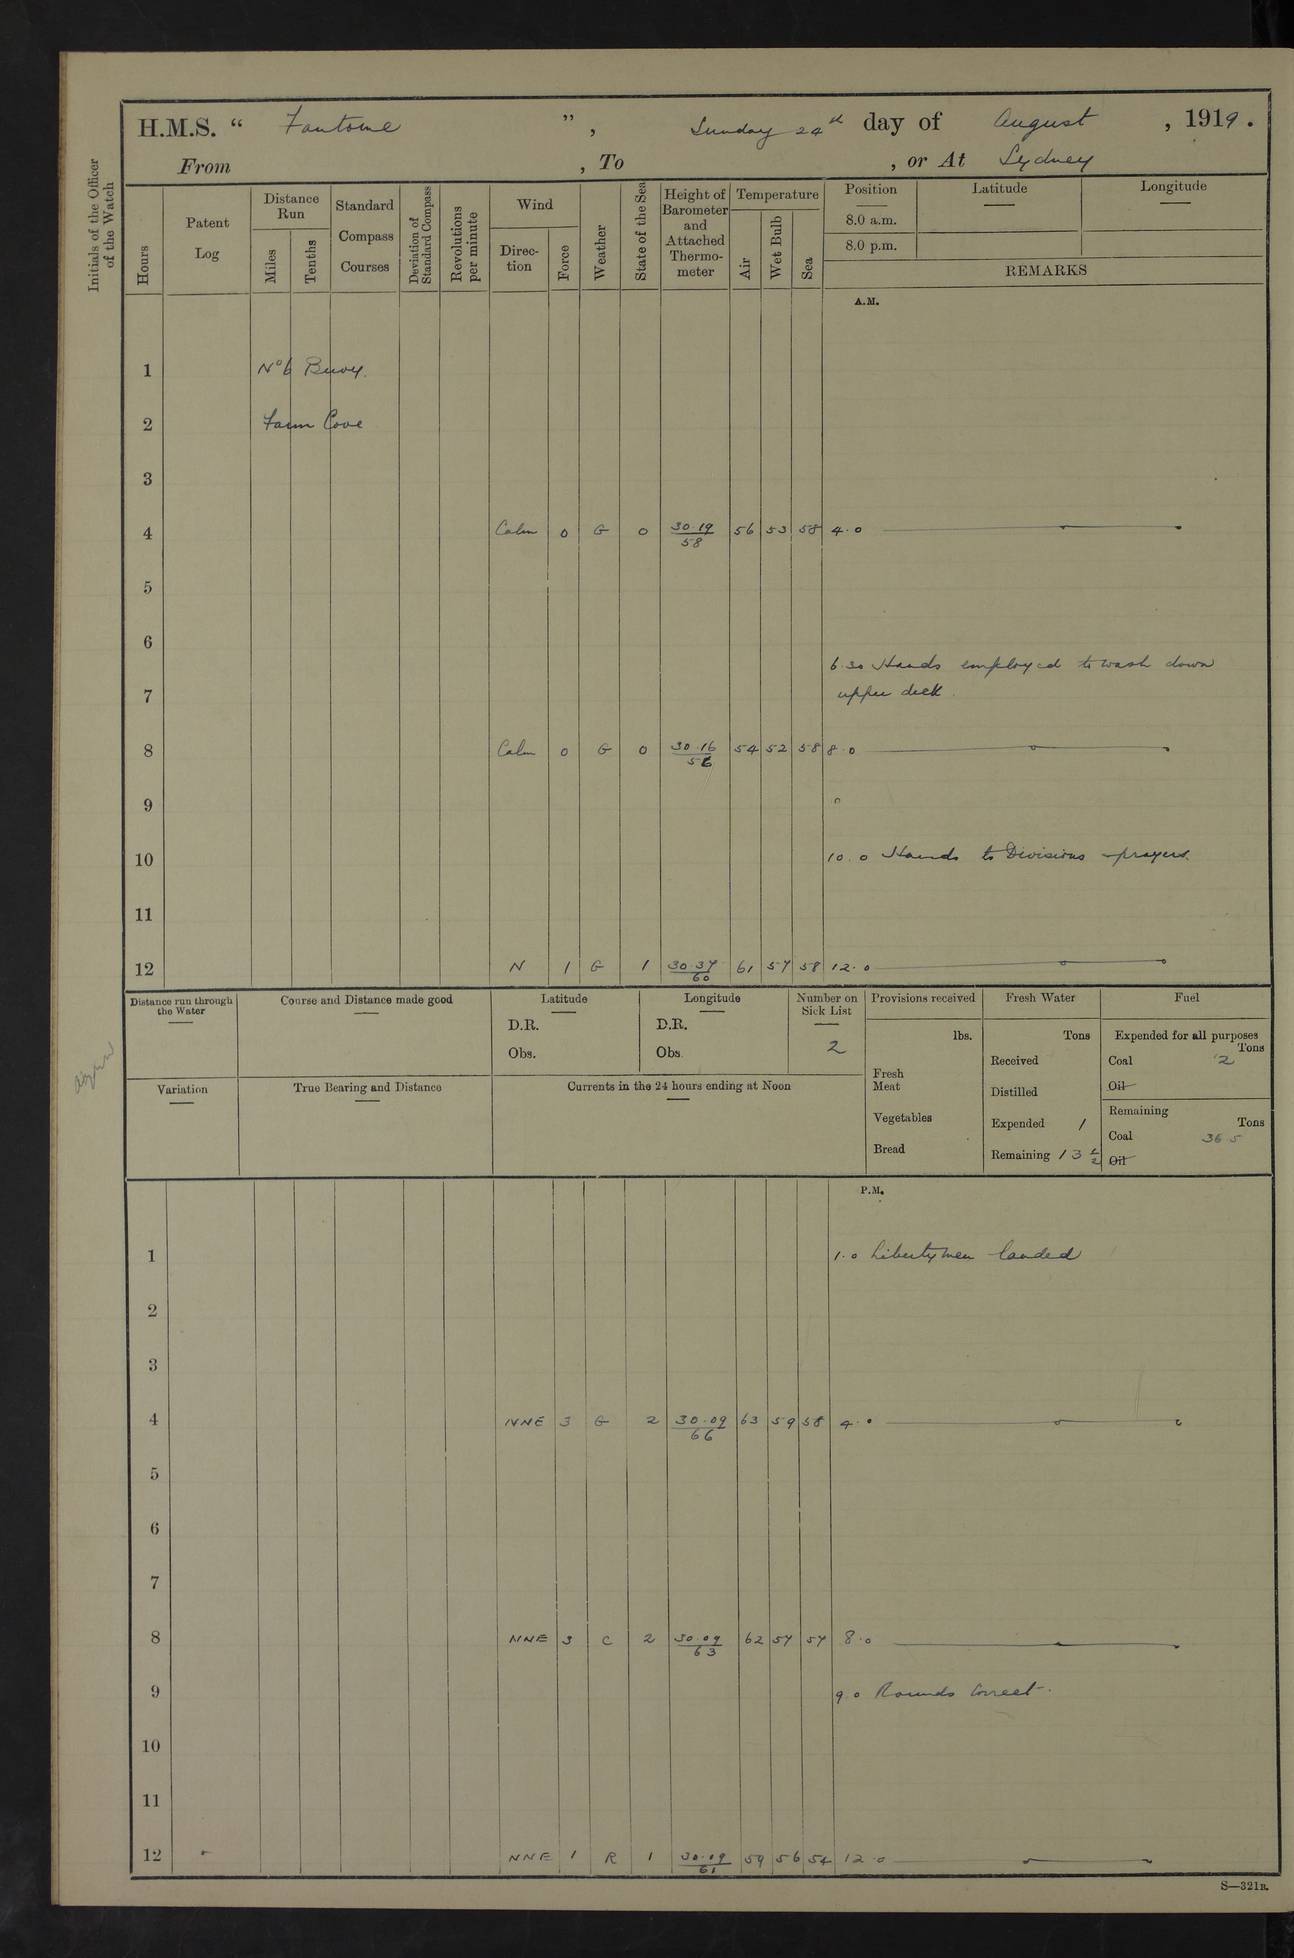 H.M.S. “ Fantome ” , Sunday 24th day of August , 1919 .
From , To , or At Sydney
Initials of the Officer of the Watch
Hours
Patent Log
Distance Run
Miles
Tenths
Standard Compass Courses
Deviation of Standard Compass
Revolutions per minute
Wind
Direction
Force
Weather
State of the Sea
Height of Barometer and Attached Thermo-meter
Temperature
Air
Wet Bulb
Sea
Position
8.0 a.m.
8.0 p.m.
Latitude
Longitude
REMARKS
A.M.
1 No 6 Buoy.
2 Farm Cove
3
4 Calm 0 G 0 30.19/58 56 53 58 4.0
5
6
6.30 Hands employed to wash down
7 upper deck.
8 Calm 0 G 0 30.16/56 54 52 58 8.0
9
10 10.0 Hands to Divisions prayers.
11
12 N 1 G 1 30.37/60 61 57 58 12.0
Distance run through the Water
Course and Distance made good
Latitude
D.R.
Obs.
Longitude
D.R.
Obs.
Number on Sick List
2
Provisions received
lbs.
Fresh Meat
Vegetables
Bread
Fresh Water
Tons
Received
Distilled
Expended 1
Remaining 13 1/2
Fuel
Expended for all purposes
Tons
Coal 2
Oil
Remaining
Tons
Coal 36.5
Oil
Variation
True Bearing and Distance
Currents in the 24 hours ending at Noon
P.M.
1 1.0 Libertymen landed
2
3
4 NNE 3 G 2 30.09/66 63 59 58 4.0
5
6
7
8 NNE 3 C 2 30.09/63 62 57 57 8.0
9 9.0 Rounds Correct.
10
11
12 NNE 1 R 1 30.09/61 59 56 54 12.0
S—321B.